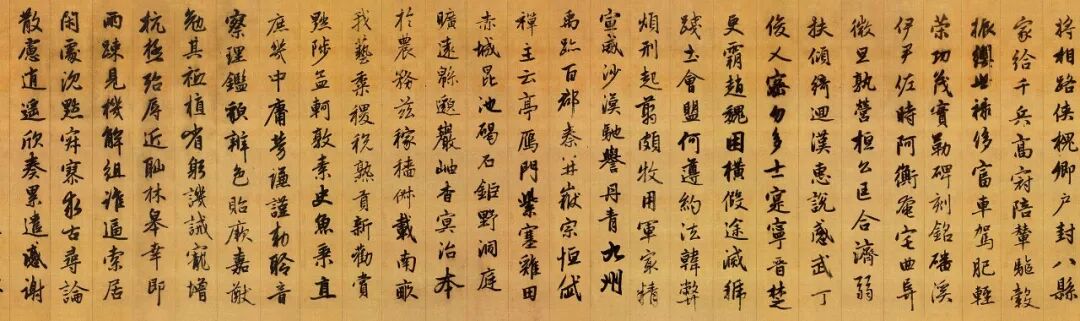 将相路侠槐卿户封八縣
家給千兵高冠陪輦驅轂
振纓世祿侈富車駕肥輕
策功茂實勒碑刻銘磻溪
伊尹佐時阿衡奄宅曲阜
微旦孰營桓公匡合濟弱
扶傾綺迴漢惠說感武丁
俊乂密勿多士寔寧晉楚
更霸趙魏困橫假途滅虢
踐土會盟何遵約法韓弊
煩刑起翦頗牧用軍冣精
宣威沙漠馳譽丹青九州
禹跡百郡秦并嶽宗恒岱
禪主云亭鴈門紫塞雞田
赤城昆池碣石鉅野洞庭
曠遠緜邈巖岫杳冥治本
於農務茲稼穡俶載南畝
我藝黍稷稅熟貢新勸賞
黜陟孟軻敦素史魚秉直
庶幾中庸勞謙謹勑聆音
察理鑑貌辨色貽厥嘉猷
勉其祗植省躬譏誡寵增
抗極殆辱近恥林皋幸即
兩踈見機解組誰逼索居
閑處沉默寂寥求古尋論
散慮逍遙欣奏累遣慼謝